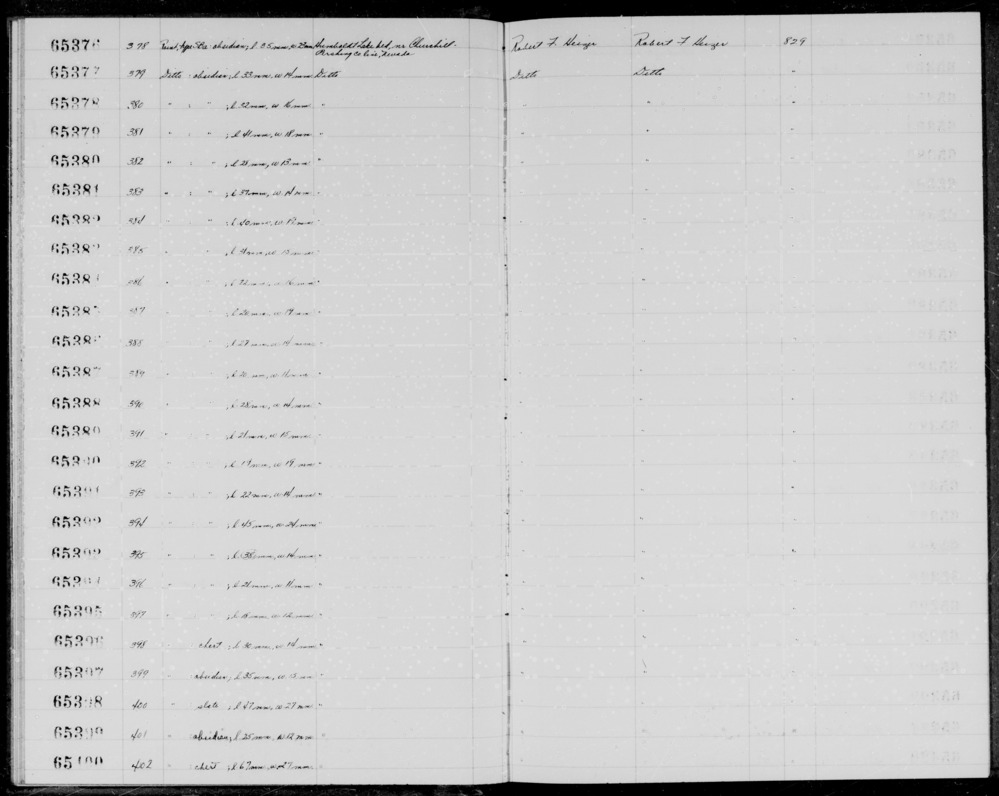 65376 378 obsidian; l 35 mm, w Humboldt Lake bed, nr Churchill- Robert F. Heizer Robert F Heizer 829
Pershing Co line, Nevada
65377 379 Ditto obsidian; l 33 mm, w 14 mm Ditto Ditto Ditto "
65378 380 " : " ; l 32 mm, w 16 mm " " " "
65379 381 " : " ; l 41 mm, w 18 mm " " " "
65380 382 " : " ; l 28 mm, w 13 mm " " " "
65381 383 " : " ; l 37 mm, w 14 mm " " " "
65382 384 " " ; l 40 mm, w mm " " " "
65383 385 " " ; l mm, w mm " " "
65384 386 " " ; l mm, w 16 mm " " "
65385 387 " " ; l mm, w 19 mm " " " "
65386 388 " ; l 27 mm, w 14 mm " " " "
65387 389 " " ; l 20 mm, w mm " " " "
65388 390 " " ; l 28 mm, w 14 mm " " " "
65389 391 " " ; l 21 mm, w 15 mm " " " "
65390 392 " " ; l 19 mm, w 18 mm " " " "
65391 393 " " ; l 22 mm, w 14 mm " " " "
65392 394 " " ; l 45 mm, w 24 mm " " " "
65393 395 " " ; l 38 mm, w 14 mm " " " "
65394 396 " " ; l 21 mm, w 11 mm " " " "
65395 397 " " ; l 18 mm, w 12 mm " " " "
65396 398 " chert ; l mm, w 14 mm " " " "
65397 399 " obsidian; l 35 mm, w 13 mm " " " "
65398 400 " slate ; l 47 mm, w 27 mm " " " "
65399 401 " obsidian; l 25 mm, w 12 mm " " " "
65400 402 " chert ; l 67 mm, w 27 mm " " " "